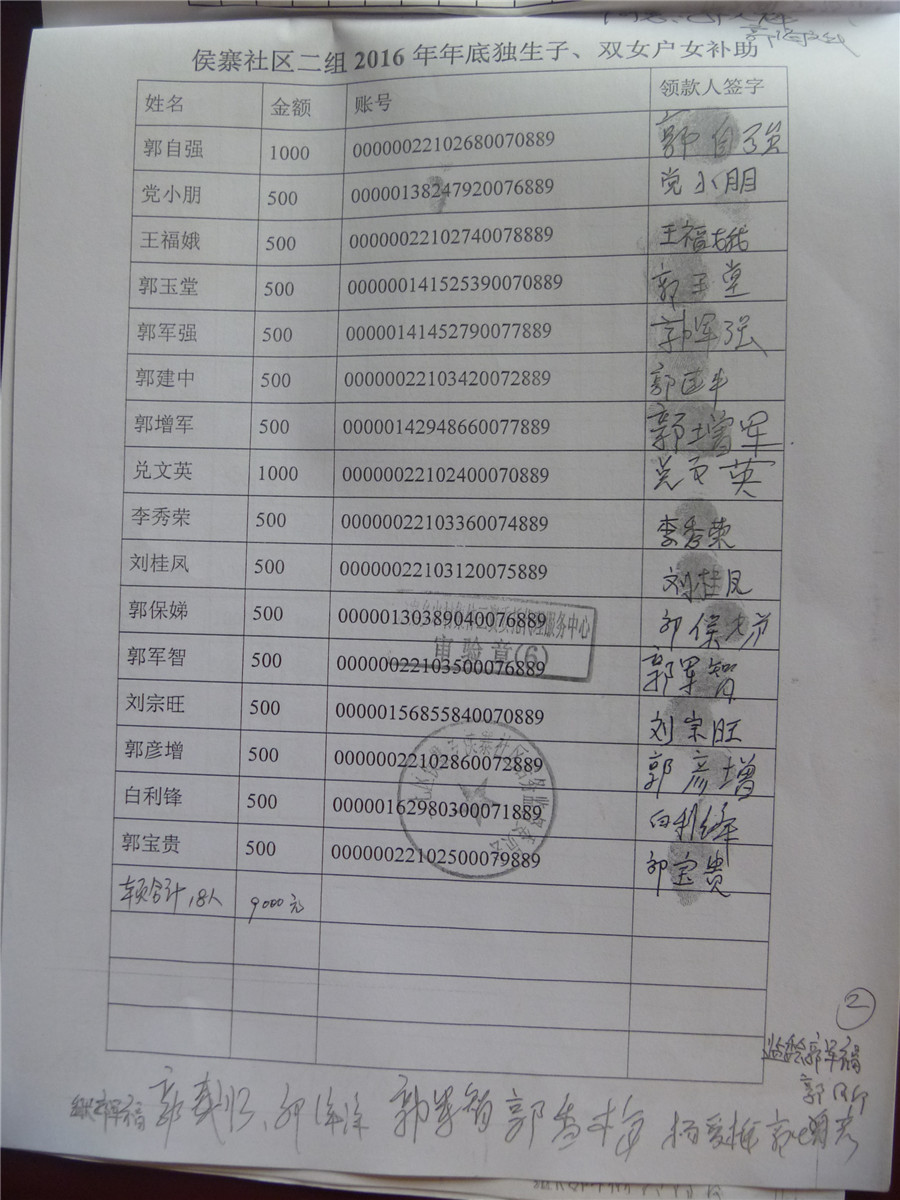 侯寨社区二组 2016 年年底独生子、双女户女补助
姓名 金额 账号 领款人签字
郭自强 1000 00000022102680070889 郭自强
党小朋 500 00000138247920076889 党小朋
王福娥 500 00000022102740078889 王福娥
郭玉堂 500 00000014152539 0070889 郭玉堂
郭军强 500 00000141452790077889 郭军强
郭建中 500 00000022103420072889 郭建中
郭增军 500 00000142948660077889 郭增军
兑文英 1000 00000022102400070889 兑文英
李秀荣 500 00000022103360074889 李秀荣
刘桂凤 500 00000022103120075889 刘桂凤
郭保娣 500 00000130389040076889
郭军智 500 00000022103500076889 郭军智
刘宗旺 500 00000156855840070889 刘宗旺
郭彦增 500 00000022102860072889 郭彦增
白利锋 500 00000162980300071889 白利锋
郭宝贵 500 00000022102500079889 郭宝贵
代理服务中心
审验章(6)
合计 18人 9000元
②
郭军福
郭军智 郭增